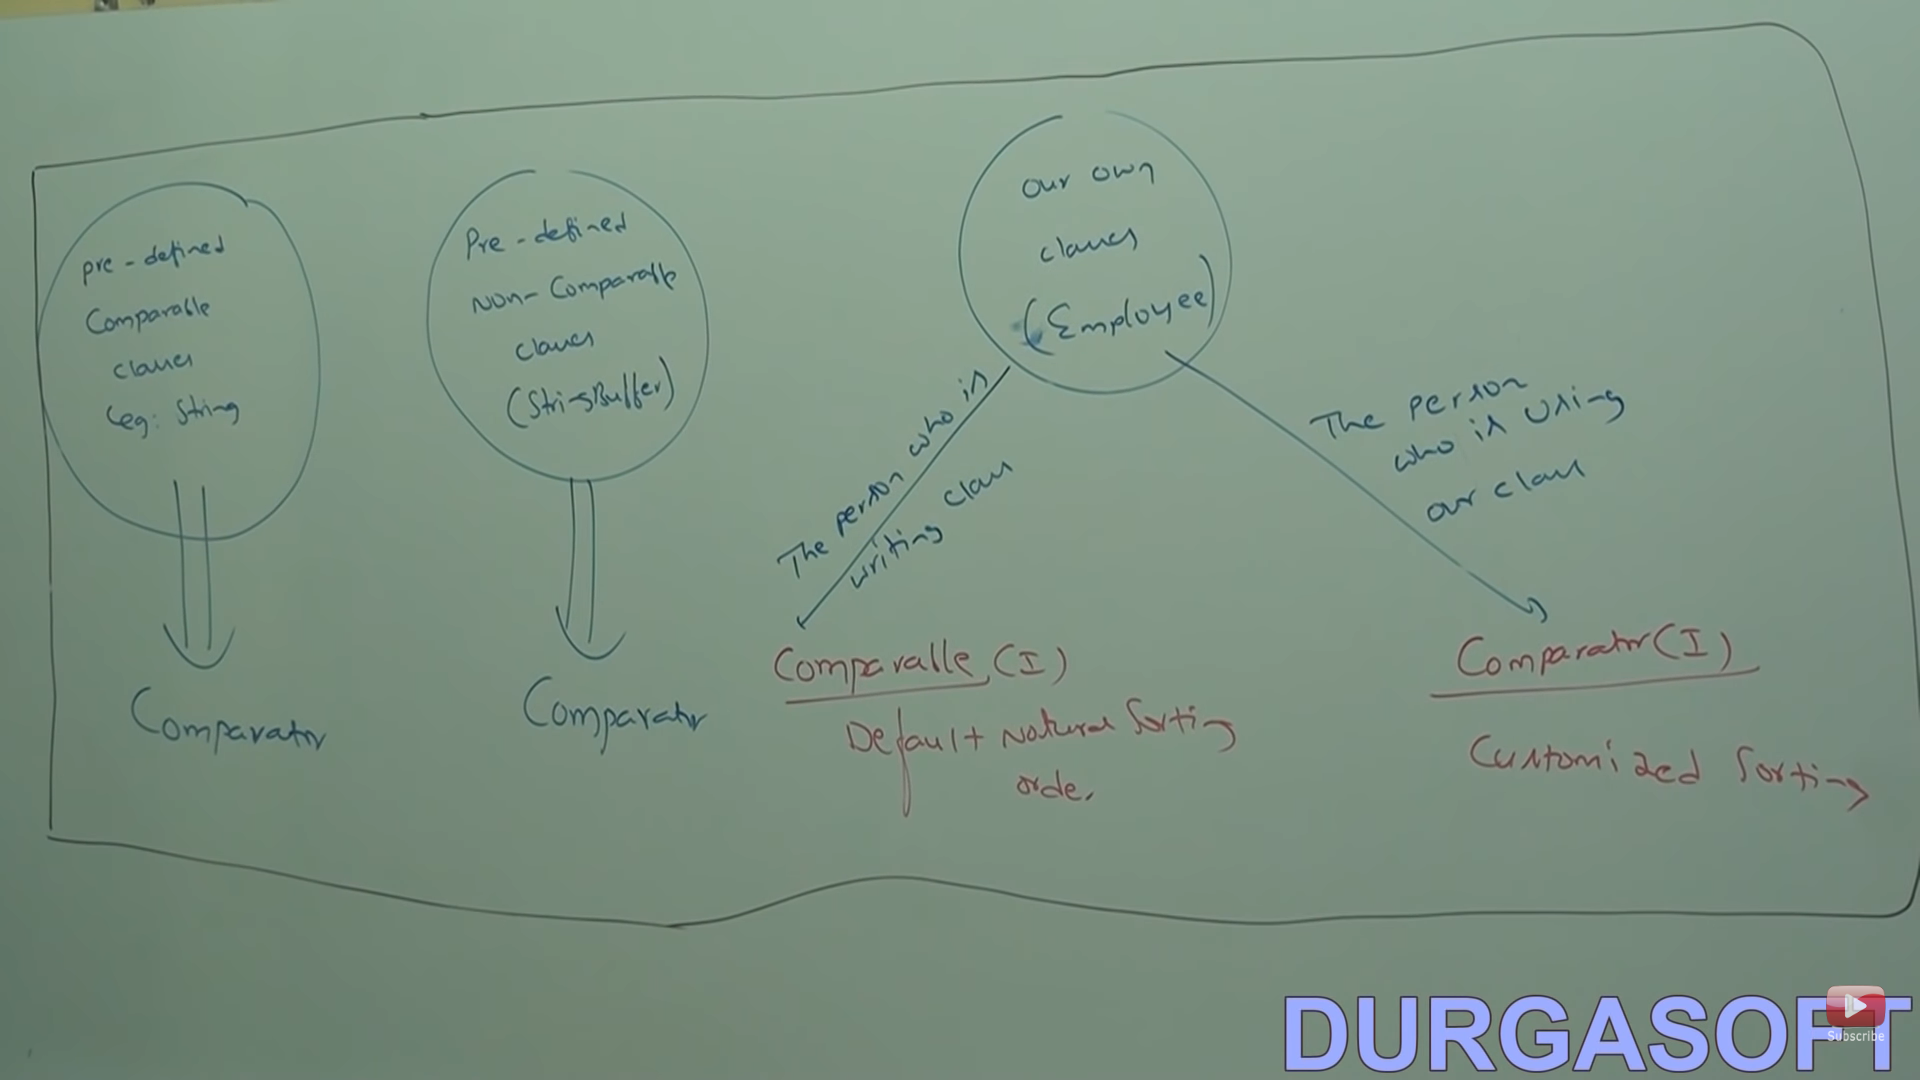 pre-defined
Comparable
classes
eg: String
Comparator
Pre-defined
Non-Comparable
classes
(StringBuffer)
Comparator
our own
classes
(Employee)
The person who is
writing class
Comparable (I)
Default Natural Sorting
order
The person
who is using
our class
Comparator (I)
Customized Sorting
DURGASOFT
Subscribe